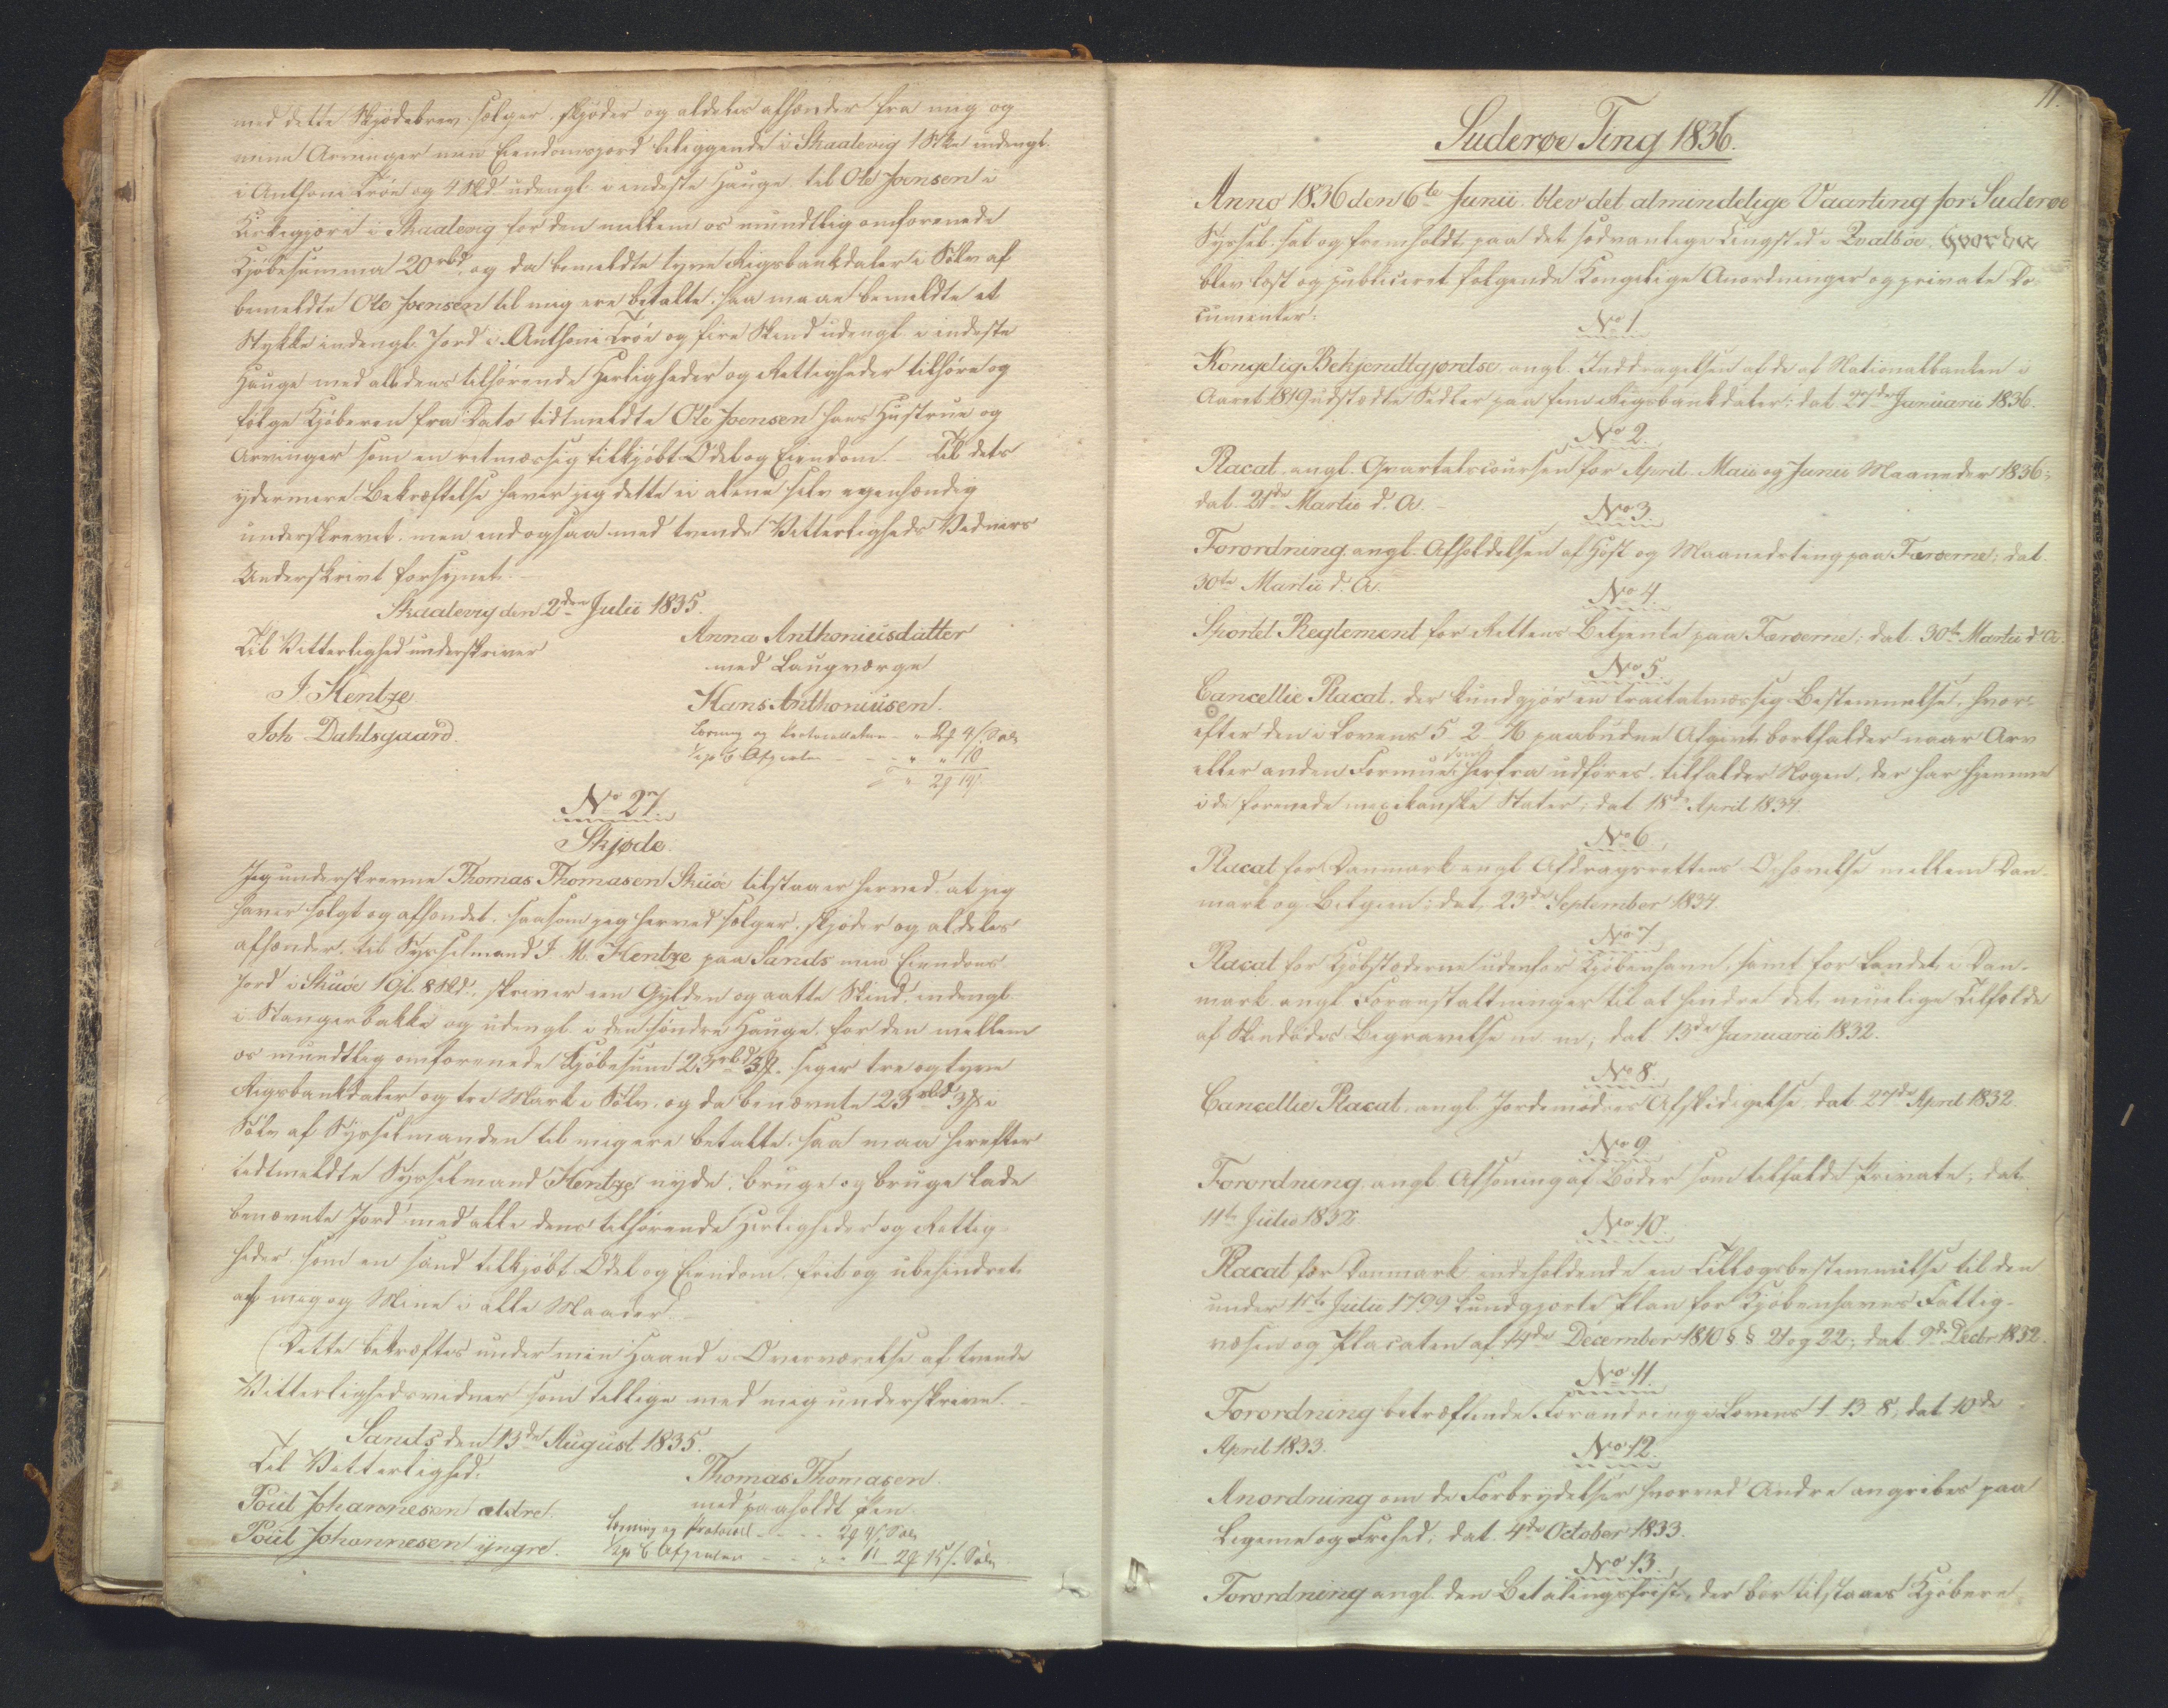 med dette Skjødebrev sælger, skjøder og aldeles afhænder fra mig og
mine Arvinger min Eiendomsjord beliggende i Skaalevig 1 Skn indengl.
i Anthoni Trøe og 4 Skd udengl. i inderste Hauge til Ole Joensen i
Kirkegjøre i Skaalevig for den mellem os mundtlig omforenede
Kjøbesumma 20 rbd, og da bemeldte tyve Rigsbankdaler i Sølv af
bemeldte Ole Joensen til mig ere betalte, saa maae bemeldte et
Stykke indengl. Jord i Anthoni Trøe og fire Skind udengl. i inderste
Hauge med all dens tilhørende Herligheder og Rettigheder tilhøre og
følge Kjøberen fra Dato tidtmeldte Ole Joensen hans Hustrue og
Arvinger som en retmæssig tilkjøbt Odel og Eiendom. – Til dets
ydermere Bekræftelse haver jeg dette ei alene selv egenhændig
underskrevet, men endogsaa med tvende Vitterligheds Vedners
Underskrivt forsynet. –
Skaalevig den 2den Julii 1835.
Til Vitterlighed underskriver
Anna Anthoniusdatter
med Laugværge
J. Hentze
Hans Anthoniusen.
Joh Dahlsgaard.
Læsning og Protocollation - " 2 4/ Sølv
1/2 p C Afgivten - - " " 10
" 2 14/.
No 27.
Skjøde.
Jeg underskrevne Thomas Thomasen Skuøe tilstaaer herved, at jeg
haver solgt og afhændet, saasom jeg herved sælger, skjøder og aldeles
afhænder, til Sysselmand J. M. Hentze paa Sands min Eiendoms
Jord i Skuøe 1 Gl. 8 Skd., skriver een Gylden og aatte Skind, indengl.
i Stangerbakke og udengl. i den søndre Hauge, for den mellem
os mundtlig omforenede Kjøbesum 23 rbd 3 , siger tre og tyve
Rigsbankdaler og tre Mark i Sølv, og da benævnte 23 rbd 3 i
Sølv af Sysselmanden til mig ere betalte, saa maa herefter
tidtmeldte Sysselmand Hentze nyde, bruge og bruge lade
benævnte Jord med alle dens tilhørende Herligheder og Rettig-
heder som en sand tilkjøbt Odel og Eiendom, frit og ubehindret
af mig og Mine i alle Maader. –
Dette bekræftes under min Haand i Overværelse af tvende
Vitterlighedsvidner som tillige med mig underskrive. –
Sands den 13de August 1835.
Til Vitterlighed.
Thomas Thomasen.
med paaholdt Pen
Poül Johannesen ældre.
Læsning og Protocoll - - - - 2 4/ Sølv
Poül Johannesen yngre.
1/2 p C Afgivten - - " " 11 - 2 15/ Sølv
11.
Suderøe Ting 1836.
Anno 1836 den 6te Junii blev det almindelige Vaarting for Suderøe
Syssel sat og fremholdt paa det sædvanlige Tingsted i Qvalbøe,
blev læst og publiceret følgende Kongelige Anordninger og private Do-
cumenter:
No 1.
Kongelig Bekjendtgjørelse, angl. Inddragelsen af de af Nationalbanken i
Aaret 1819 udstædte Sedler paa fem Rigsbankdaler; dat. 27de Januarii 1836.
No 2.
Placat, angl. Qvartalscoursen for April, Maii og Junii Maaneder 1836;
dat. 21de Martii d. A. –
No 3.
Forordning, angl. Afholdelsen af Høst og Maanedsting paa Færøerne; dat.
30te Martii d. A.
No 4.
Sportel Reglement for Rettens Betjente paa Færøerne; dat. 30te Martii d. A.
No 5.
Cancellie Placat, der kundgjør en tractatmæssig Bestemmelse, hvor-
efter den i Lovens 5-2-76 paabudne Afgivt bortfalder naar Arv
eller anden Formue, som herfra udføres, tilfalder Nogen, der har hjemme
i de forenede mexikanske Stater; dat 18de April 1834.
No 6.
Placat for Danmark angl. Afdragsrettens Ophævelse mellem Dan-
mark og Belgien; dat. 23de September 1834.
No 7.
Placat for Kjøbstæderne udenfor Kjøbenhavn, samt for Landet i Dan-
mark angl. Foranstaltninger til at hindre det muelige Tilfælde
af Skindødes Begravelse m. m; dat. 13de Januarii 1832.
No 8.
Cancellie Placat, angl. Jordemødres Afskedigelse, dat 27de April 1832.
No 9.
Forordning, angl. Afsoning af Bøder som tilfalde Private; dat.
11te Julii 1832.
No 10.
Placat for Danmark, indeholdende en Tillægsbestemmelse til den
under 1ste Julii 1799 kundgjorte Plan for Kjøbenhavns Fattig-
væsen og Placaten af 14de December 1810 § § 21 og 22; dat. 9de Decbr 1832.
No 11.
Forordning betræffende Forandring i Lovens 1-13-8, dat 10de
April 1833.
No 12.
Anordning om de Forbrydelser hvorved Andre angribes paa
Legeme og Frihed; dat. 4de October 1833.
No 13.
Forordning angl. den Betalingsfrist, der bør tilstaaes Kjøbere